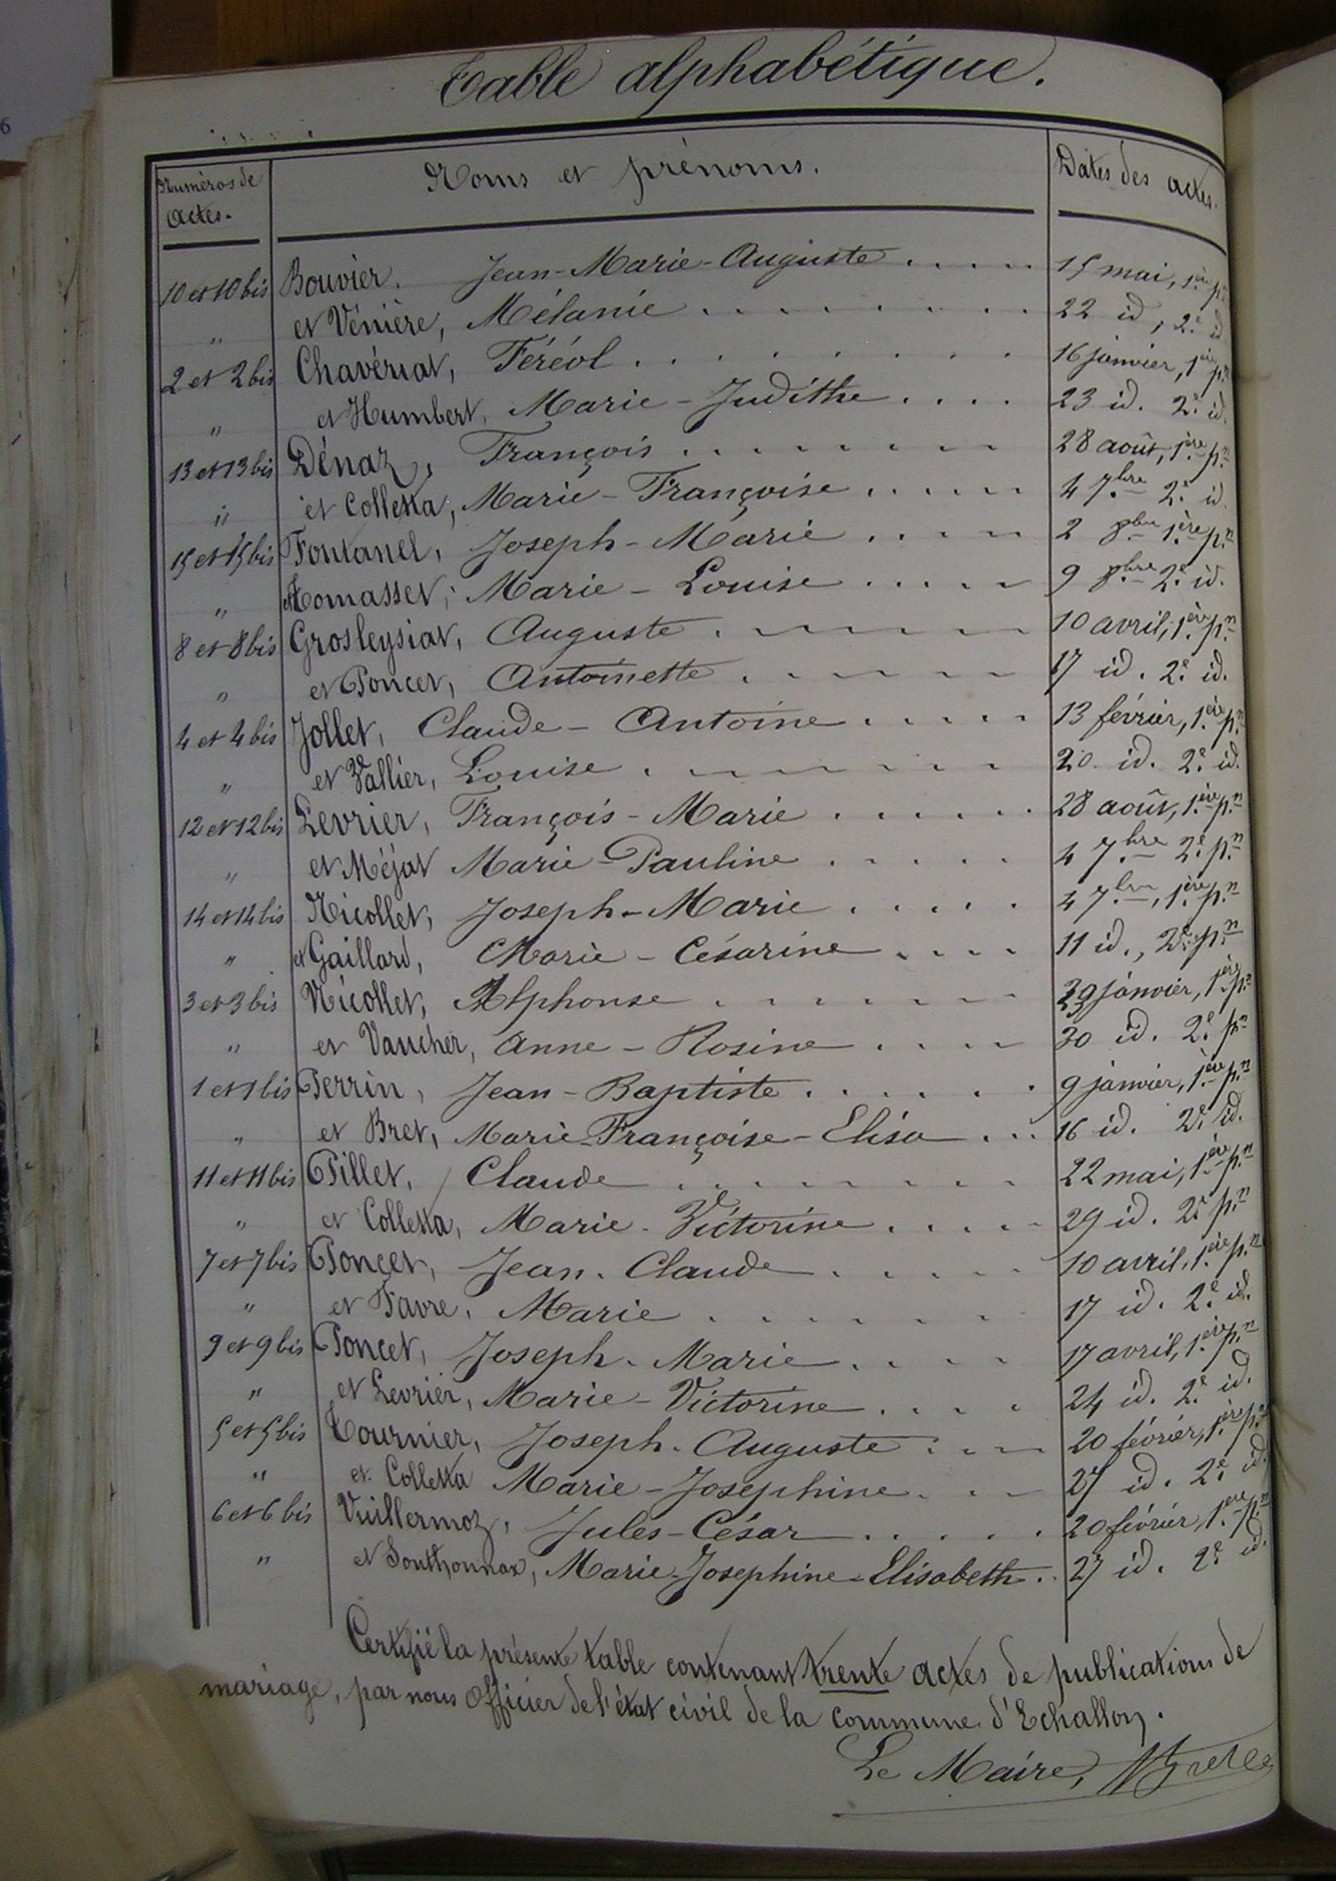 Table alphabétique.
Numéros de actes. Noms et prénoms. Dates des actes.
10 et 10 bis Bouvier, Jean-Marie-Auguste . . . . . 15 mai, 1.ère p.n
" et Vénière, Mélanie . . . . . . . . 22 id, 2.e id
2 et 2 bis Chavériat, Féréol . . . . . . . . 16 janvier, 1.ère p.n
" et Humbert, Marie-Judithe . . . . 23 id. 2.e id.
13 et 13 bis Dénaz, François . . . . . . . . 28 août, 1.ère p.n
" et Colletta, Marie-Françoise . . . . . 4 7.bre 2.e id.
15 et 15 bis Fontanel, Joseph-Marie . . . . 2 8.bre 1.ère p.n
" et Tomasset, Marie-Louise . . . . . 9 8.bre 2.e id.
8 et 8 bis Grosleysiat, Auguste . . . . . . . 10 avril, 1.ère p.n
" et Poncet, Antoinette . . . . . . 17 id. 2.e id.
4 et 4 bis Jollet, Claude-Antoine . . . . . 13 février, 1.ère p.n
" et Vallier, Louise . . . . . . . . 20 id. 2.e id.
12 et 12 bis Levrier, François-Marie . . . . . . 28 août, 1.ère p.n
" et Méjat Marie-Pauline . . . . . 4 7.bre 2.e p.n
14 et 14 bis Nicollet, Joseph-Marie . . . . . 4 7.bre, 1.ère p.n
" et Gaillard, Marie-Césarine . . . . 11 id., 2.e p.n
3 et 3 bis Nicollet, Alphonse . . . . . . . 23 janvier, 1.ère p.n
" et Vaucher, Anne-Rosine . . . . 30 id. 2.e p.n
1 et 1 bis Perrin, Jean-Baptiste . . . . . . 9 janvier, 1.ère p.n
" et Bret, Marie-Françoise-Elisa . . . 16 id. 2.e id.
11 et 11 bis Pillet, Claude . . . . . . . . 22 mai, 1.ère p.n
" et Colletta, Marie-Victorine . . . . . 29 id. 2.e p.n
7 et 7 bis Poncet, Jean-Claude . . . . . 10 avril, 1.ère p.n
" et Favre, Marie . . . . . . . 17 id. 2.e id.
9 et 9 bis Poncet, Joseph-Marie . . . . 17 avril, 1.ère p.n
" et Levrier, Marie-Victorine . . . . 24 id. 2.e id.
5 et 5 bis Tournier, Joseph-Auguste . . . . 20 février, 1.ère p.n
" et Colletta Marie-Josephine . . . 27 id. 2.e id.
6 et 6 bis Vuillermoz, Jules-César . . . . . 20 février, 1.ère p.n
" et Sonthonnax, Marie-Josephine-Elisabeth . . 27 id. 2.e id.
Certifié la présente table contenant trente actes de publications de
mariage, par nous Officier de l'état civil de la commune d'Echallon.
Le Maire,